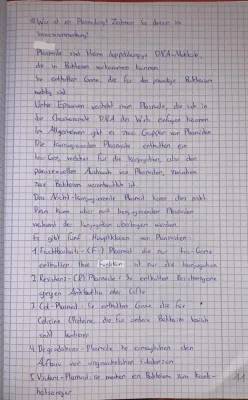 Was ist ein Plasmid
Plasmide sind kleine doppelsträngige DNA-Moleküle,
die in Bakterien vorkommen können.
Sie enthalten Gene, die für das jeweilige Bakterium
wichtig sind.
Unter Episomen versteht man Plasmide, die sich in
die chromosomale DNA des Wirts einfügen können.
Im Allgemeinen gibt es zwei Gruppen von Plasmiden.
Die konjugierenden Plasmide enthalten ein
tra-Gen, welches für die Konjugation, also den
parasexuellen Austausch von Plasmiden, zwischen
zwei Bakterien verantwortlich ist.
Das Nicht-konjugierende Plasmid kann dies nicht.
Kann aber mit konjugierenden Plasmiden
während der Konjugation übertragen werden.
Es gibt fünf Hauptklassen von Plasmiden:
1. Fruchtbarkeits-(F-) Plasmid die nur tra-Gene
enthalten. Ihre Funktion ist nur die Konjugation
2. Resistenz-(R-) Plasmide: Sie enthalten Resistenzgene
gegen Antibiotika oder Gifte
3. Col-Plasmid: Sie enthalten Gene die für
Colicine (Proteine, die für andere Bakterien toxisch
sind)
4. Degradations-Plasmide: Sie ermöglichen den
Abbau von ungewöhnlichen Substanzen
5. Virulenz-Plasmid: sie machen ein Bakterium zum Krank-
heitserreger